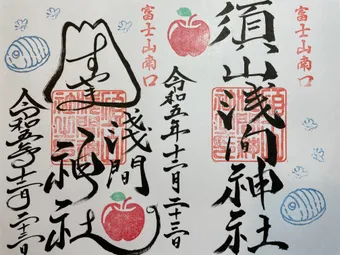 富士山南口
須山浅間神社
令和五年十二月二十三日
富士山南口
すやま
浅間
神社
令和五年十二月二十三日